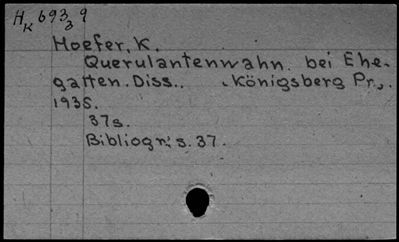 HK 693 9
3
Hoefer, K.
Querulantenwahn. bei Ehe-
gatten. Diss.. Königsberg Pr.,
1935.
37s.
Bibliogr.: s. 37.